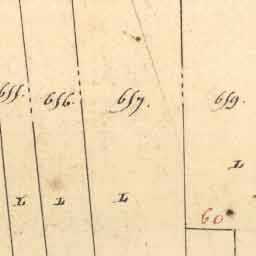 655. 656. 657. 659.
L
L L L
60